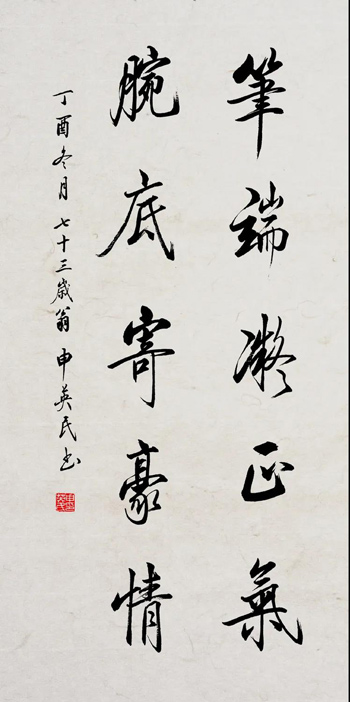 筆端凝正氣
腕底寄豪情
丁酉冬月七十三歲翁申英民书